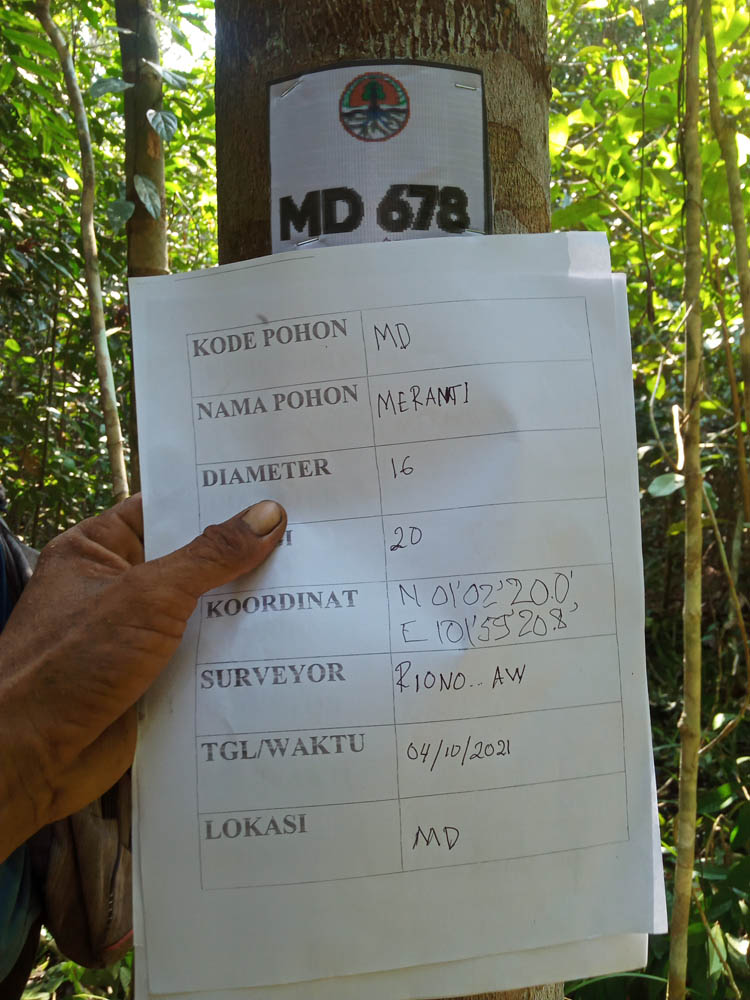 MD 678
KODE POHON MD
NAMA POHON MERANTI
DIAMETER 16
20
KOORDINAT N 01'02'20.0'
E 101'55'20.8'
SURVEYOR RIONO... AW
TGL/WAKTU 04/10/2021
LOKASI MD